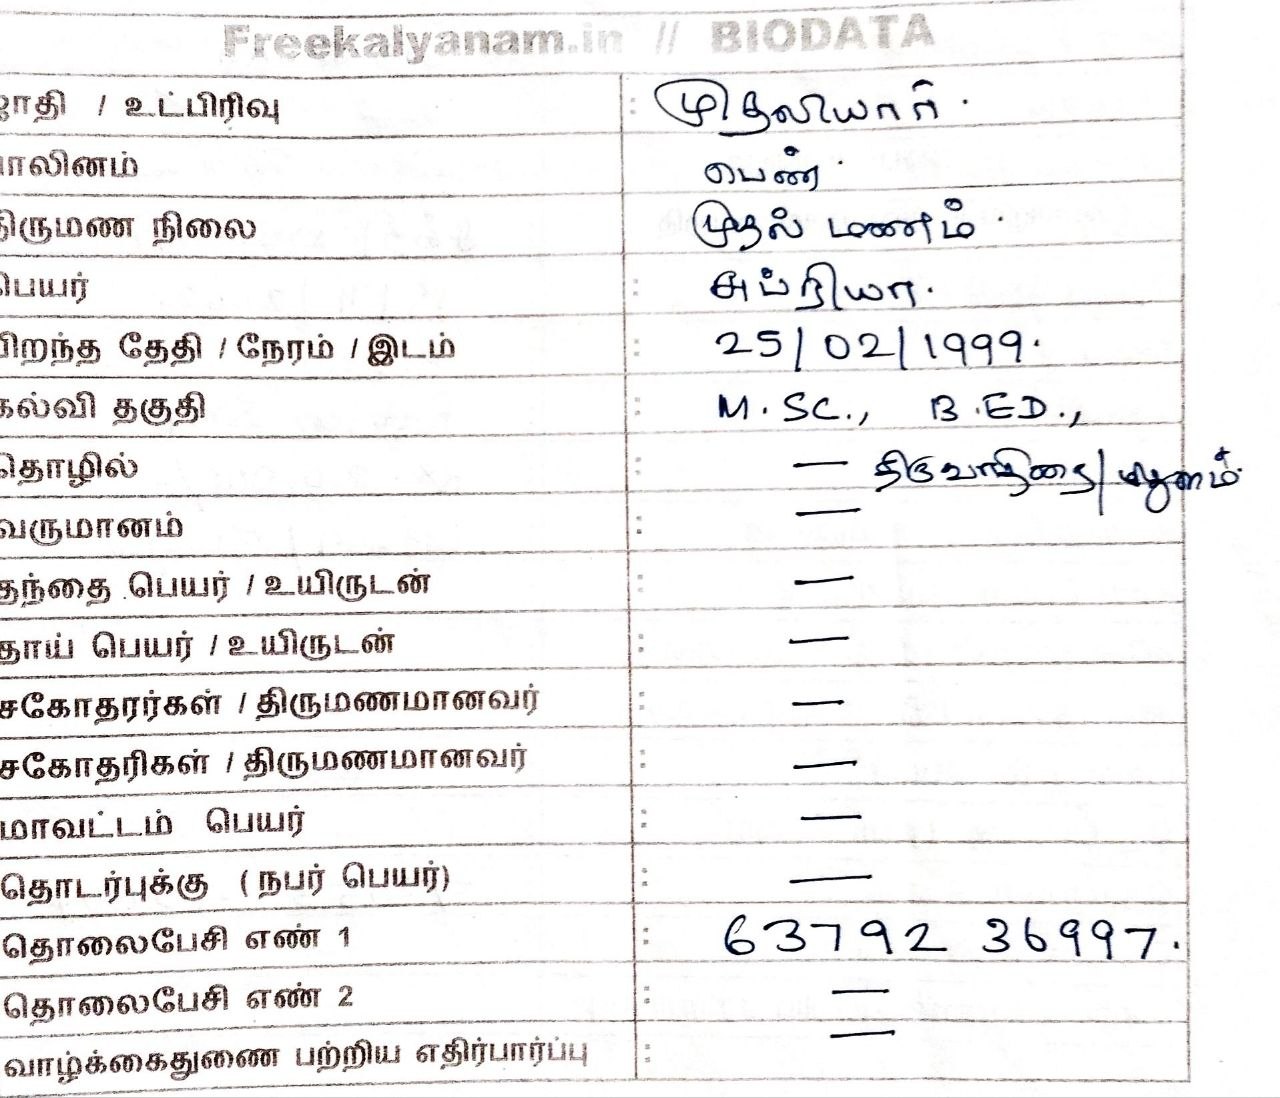 Freekalyanam.in // BIODATA
ஜாதி / உட்பிரிவு : முதலியார்.
பாலினம் பெண்.
திருமண நிலை முதல் மணம்.
பெயர் : சுப்ரியா.
பிறந்த தேதி / நேரம் / இடம் : 25/02/1999.
கல்வி தகுதி : M.SC., B.ED.,
தொழில் : — திருவாதிரை/மிதுனம்.
வருமானம் : —
தந்தை பெயர் / உயிருடன் : —
தாய் பெயர் / உயிருடன் : —
சகோதரர்கள் / திருமணமானவர் : —
சகோதரிகள் / திருமணமானவர் : —
மாவட்டம் பெயர் : —
தொடர்புக்கு ( நபர் பெயர்) : —
தொலைபேசி எண் 1 : 63792 36997.
தொலைபேசி எண் 2 : —
வாழ்க்கைதுணை பற்றிய எதிர்பார்ப்பு : —